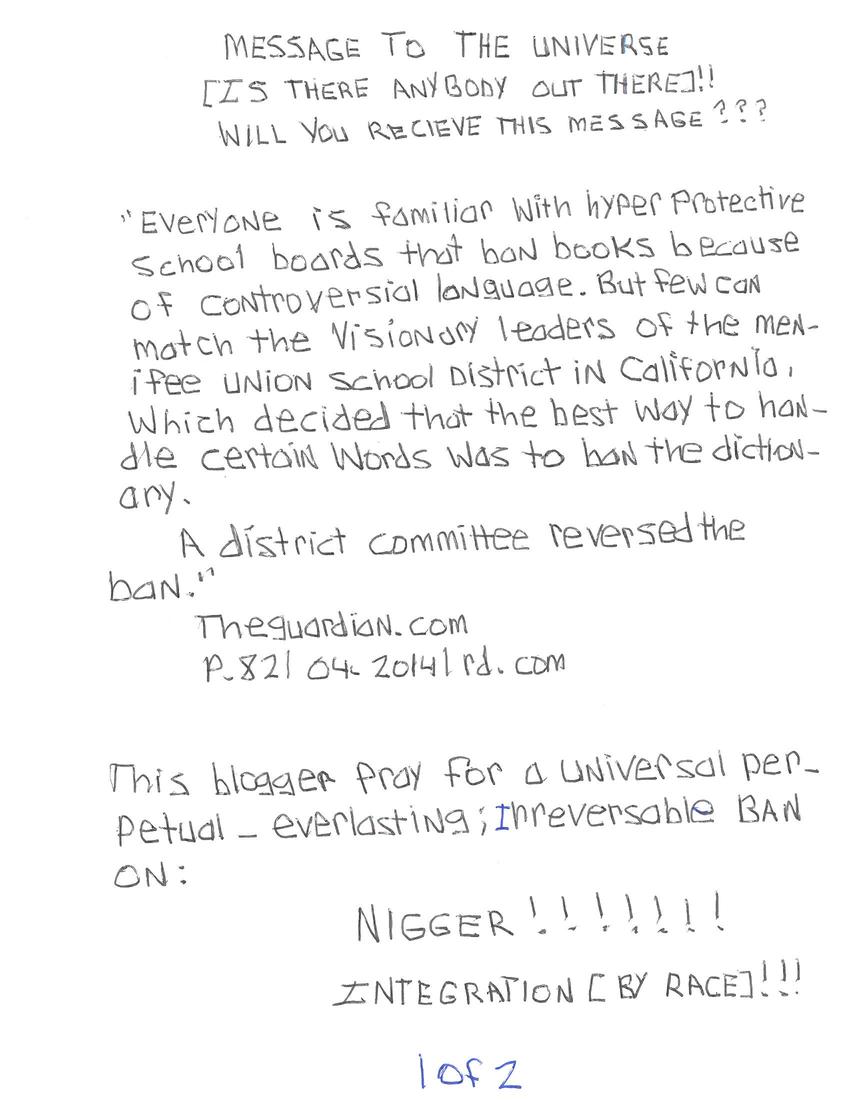 MESSAGE TO THE UNIVERSE
[IS THERE ANYBODY OUT THERE]!!
WILL YOU RECIEVE THIS MESSAGE ???
"Everyone is familiar with hyper Protective
school boards that ban books because
of controversial language. But few can
match the visionary leaders of the men-
ifee union school District in California,
Which decided that the best way to han-
dle certain Words was to ban the diction-
ary.
A district committee reversed the
ban."
Theguardian.com
P.82| 04-2014| rd.com
This blogger pray for a universal per-
petual - everlasting; Irreversable BAN
ON:
NIGGER !!!!!!!
INTEGRATION [BY RACE]!!!
1 of 2